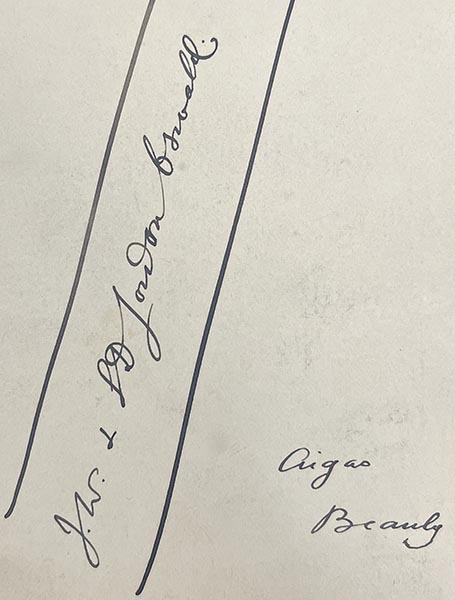 J.W. & S.D Gordon Oswald.
Aigas
Beauly